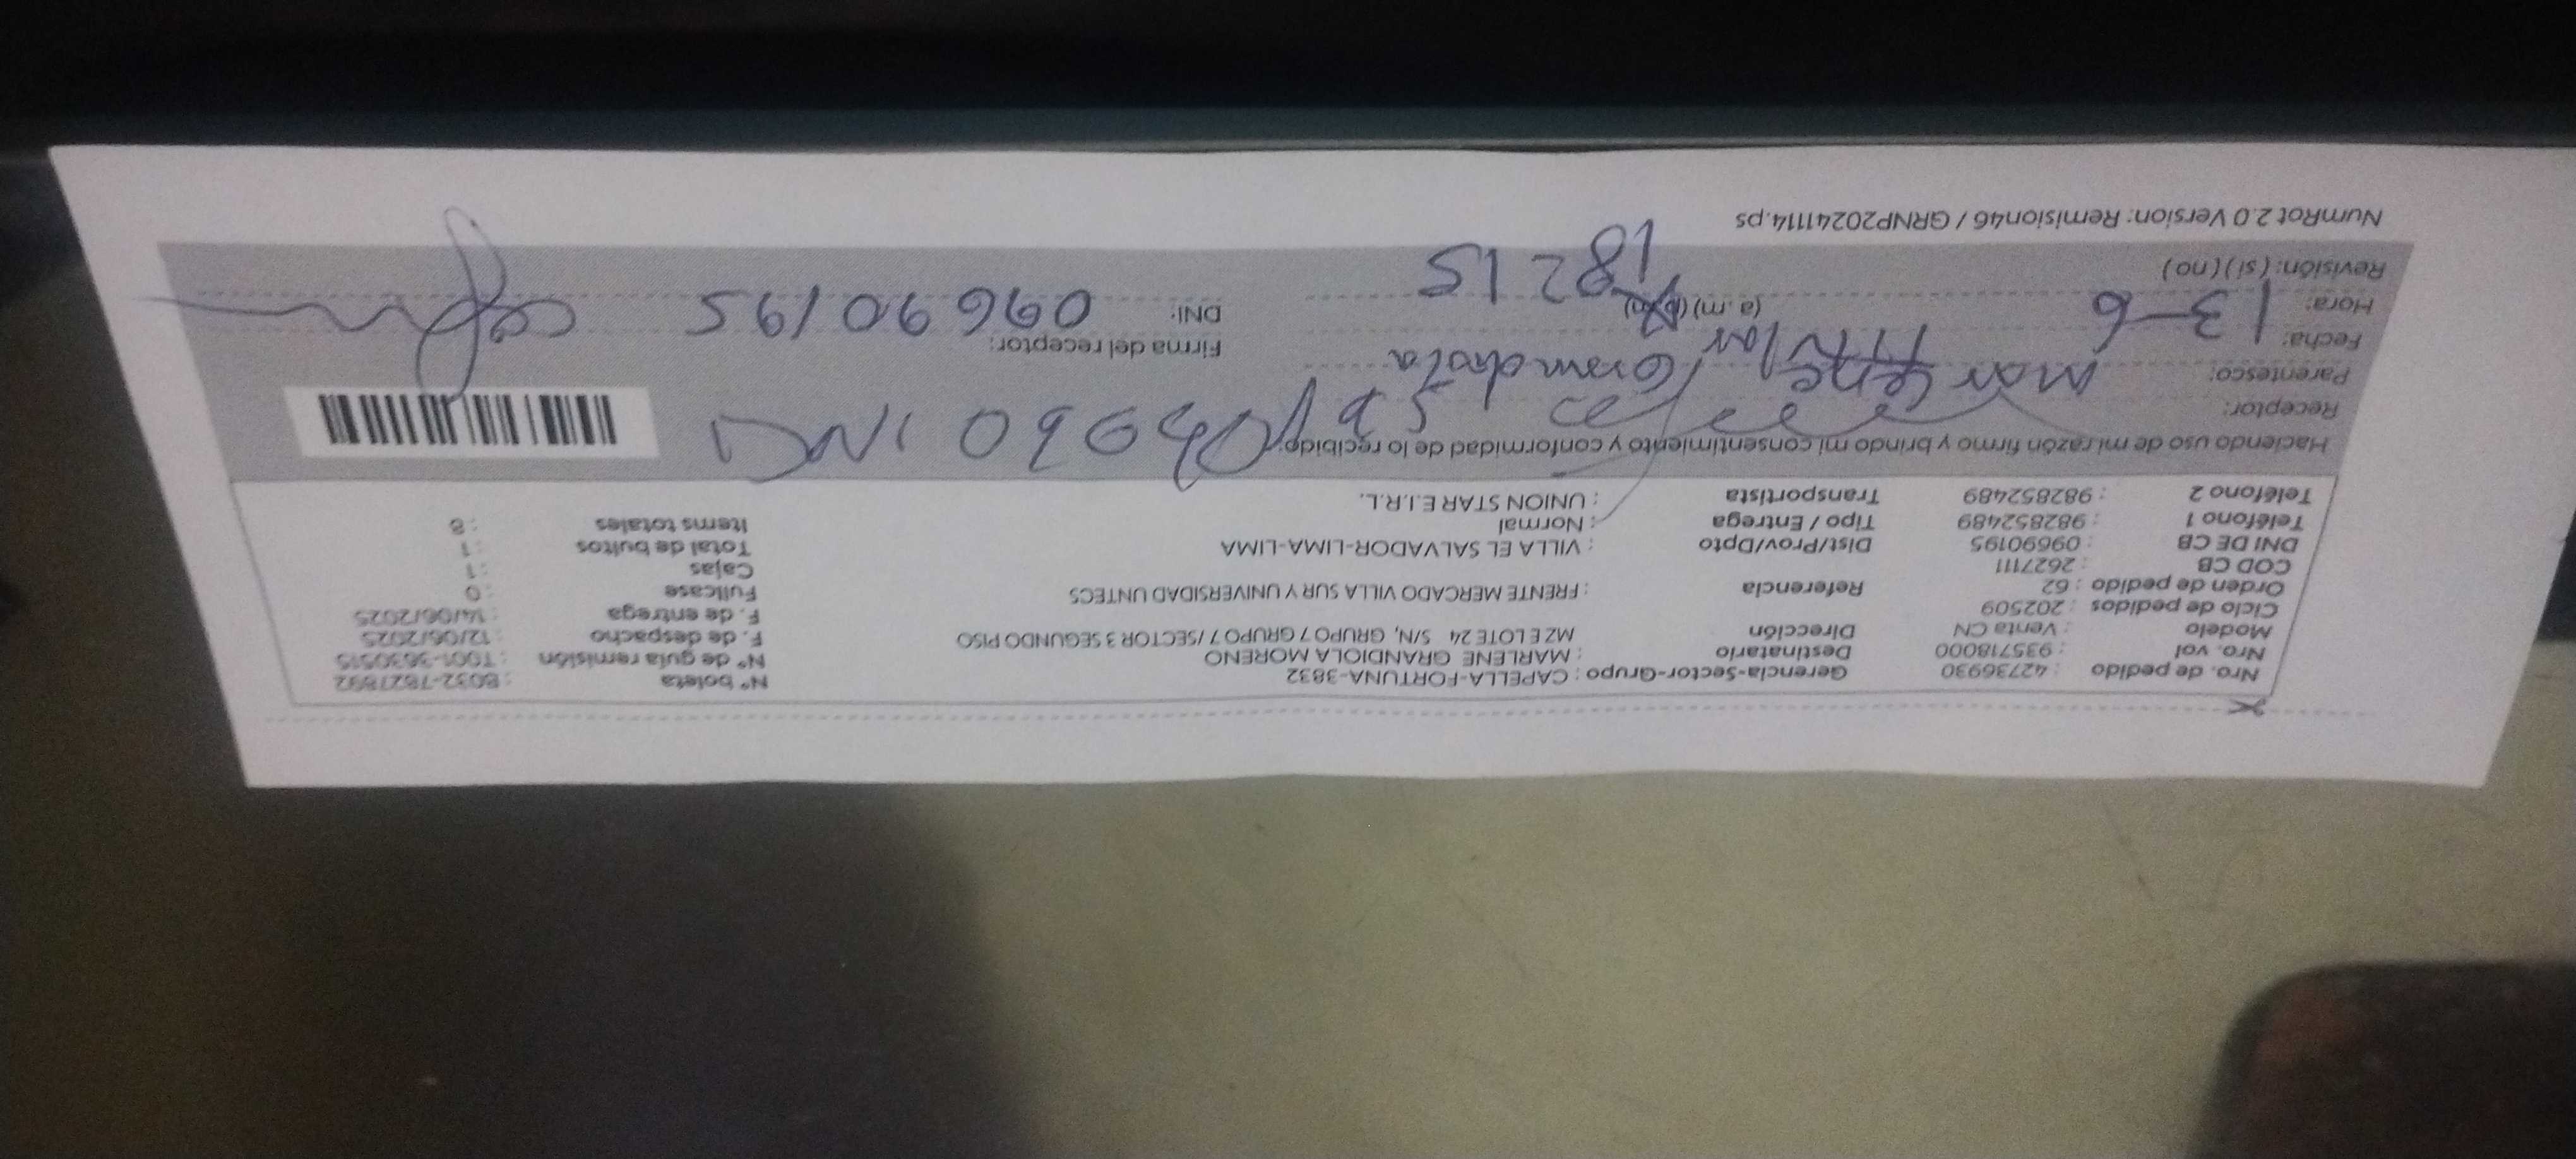 Nro. de pedido : 42736930 Gerencia-Sector-Grupo : CAPELLA-FORTUNA-3832 N° boleta : B032-7827892
Nro. vol : 935718000 Destinatario : MARLENE GRANDIOLA MORENO N° de guía remisión : T001-3630515
Modelo : Venta CN Dirección MZ E LOTE 24 S/N, GRUPO 7 GRUPO 7 /SECTOR 3 SEGUNDO PISO F. de despacho : 12/06/2025
Ciclo de pedidos : 202509 F. de entrega : 14/06/2025
Orden de pedido : 62 Referencia : FRENTE MERCADO VILLA SUR Y UNIVERSIDAD UNTECS Fullcase : 0
COD CB : 2627111 Cajas : 1
DNI DE CB : 09690195 Dist/Prov/Dpto : VILLA EL SALVADOR-LIMA-LIMA Total de bultos : 1
Teléfono 1 : 982852489 Tipo / Entrega : Normal Items totales : 8
Teléfono 2 : 982852489 Transportista : UNION STAR E.I.R.L.
Haciendo uso de mi razón firmo y brindo mi consentimiento y conformidad de lo recibido:
Receptor:
Parentesco: Marlene Grandiola
Fecha: 13-6 Titular Firma del receptor:
Hora: (a.m) (p.m) DNI: 09690195
Revisión: (si) (no) 18215
NumRot 2.0 Version: Remision46 / GRNP20241114.ps